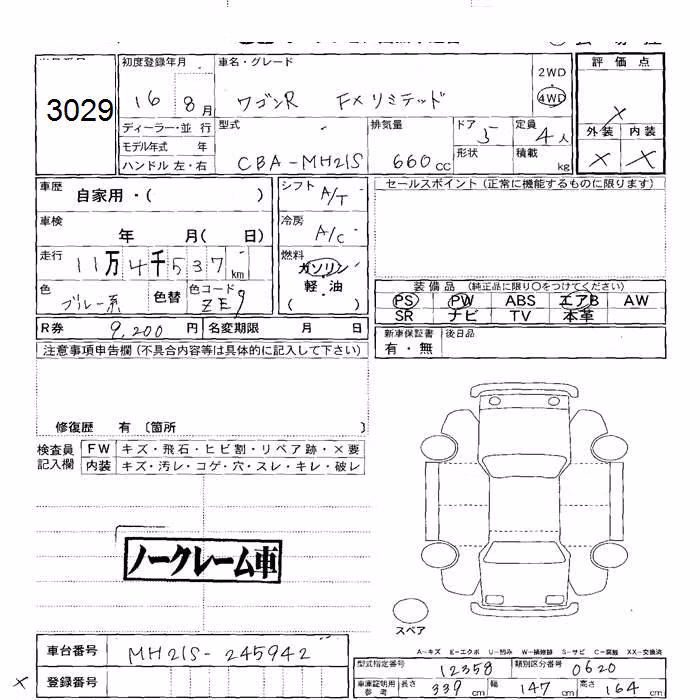 3029
初度登録年月 16 8月
車名・グレード ワゴンR FXリミテッド
2WD
4WD
評価点 X
外装 内装
X X
ディーラー・並行
モデル年式 年
ハンドル 左・右
型式 CBA-MH21S
排気量 660cc
ドア 5
形状
定員 4人
積載 kg
車歴 自家用・( )
シフト A/T
車検 年 月( 日)
冷房 A/C
走行 11万4千537km
燃料 ガソリン
軽・油
( )
色 ブルー系
色替
色コード ZE9
R券 9,200円
名変期限 月 日
セールスポイント(正常に機能するものに限ります)
装備品(純正品に限り○をつけてください)
PS PW ABS エアB AW
SR ナビ TV 本革
新車保証書 有・無
後日品
注意事項申告欄(不具合内容等は具体的に記入して下さい)
修復歴 有 〔箇所 〕
検査員記入欄
FW キズ・飛石・ヒビ割・リペア跡・×要
内装 キズ・汚レ・コゲ・穴・スレ・キレ・破レ
ノークレーム車
スペア
A-キズ E-エクボ U-凹み W-補修跡 S-サビ C-腐蝕 XX-交換済
車台番号 MH21S-245942
登録番号
X
型式指定番号 12358
類別区分番号 0620
車庫証明用参考 長さ 339cm 幅 147cm 高さ 164cm